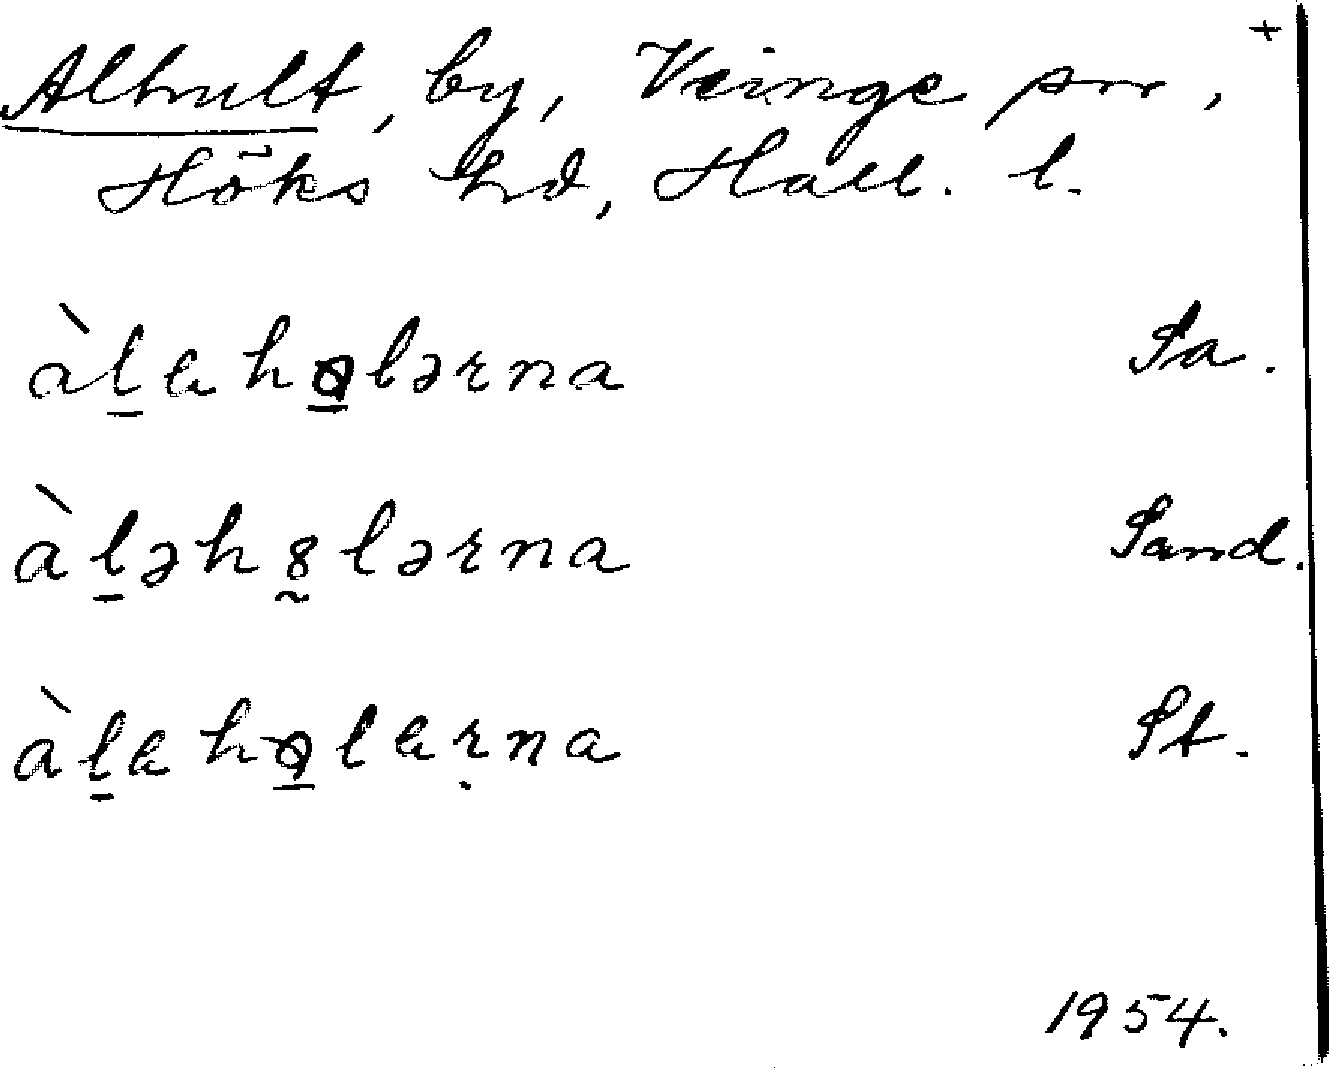 +
Alhult, by, Veinge sn,
Höks hd, Hall. l.
àl̠ɐho̠lərna Sa.
àl̠əh8̰lərna Sand.
àl̠ɐho̠lɐṛna St.
1954.